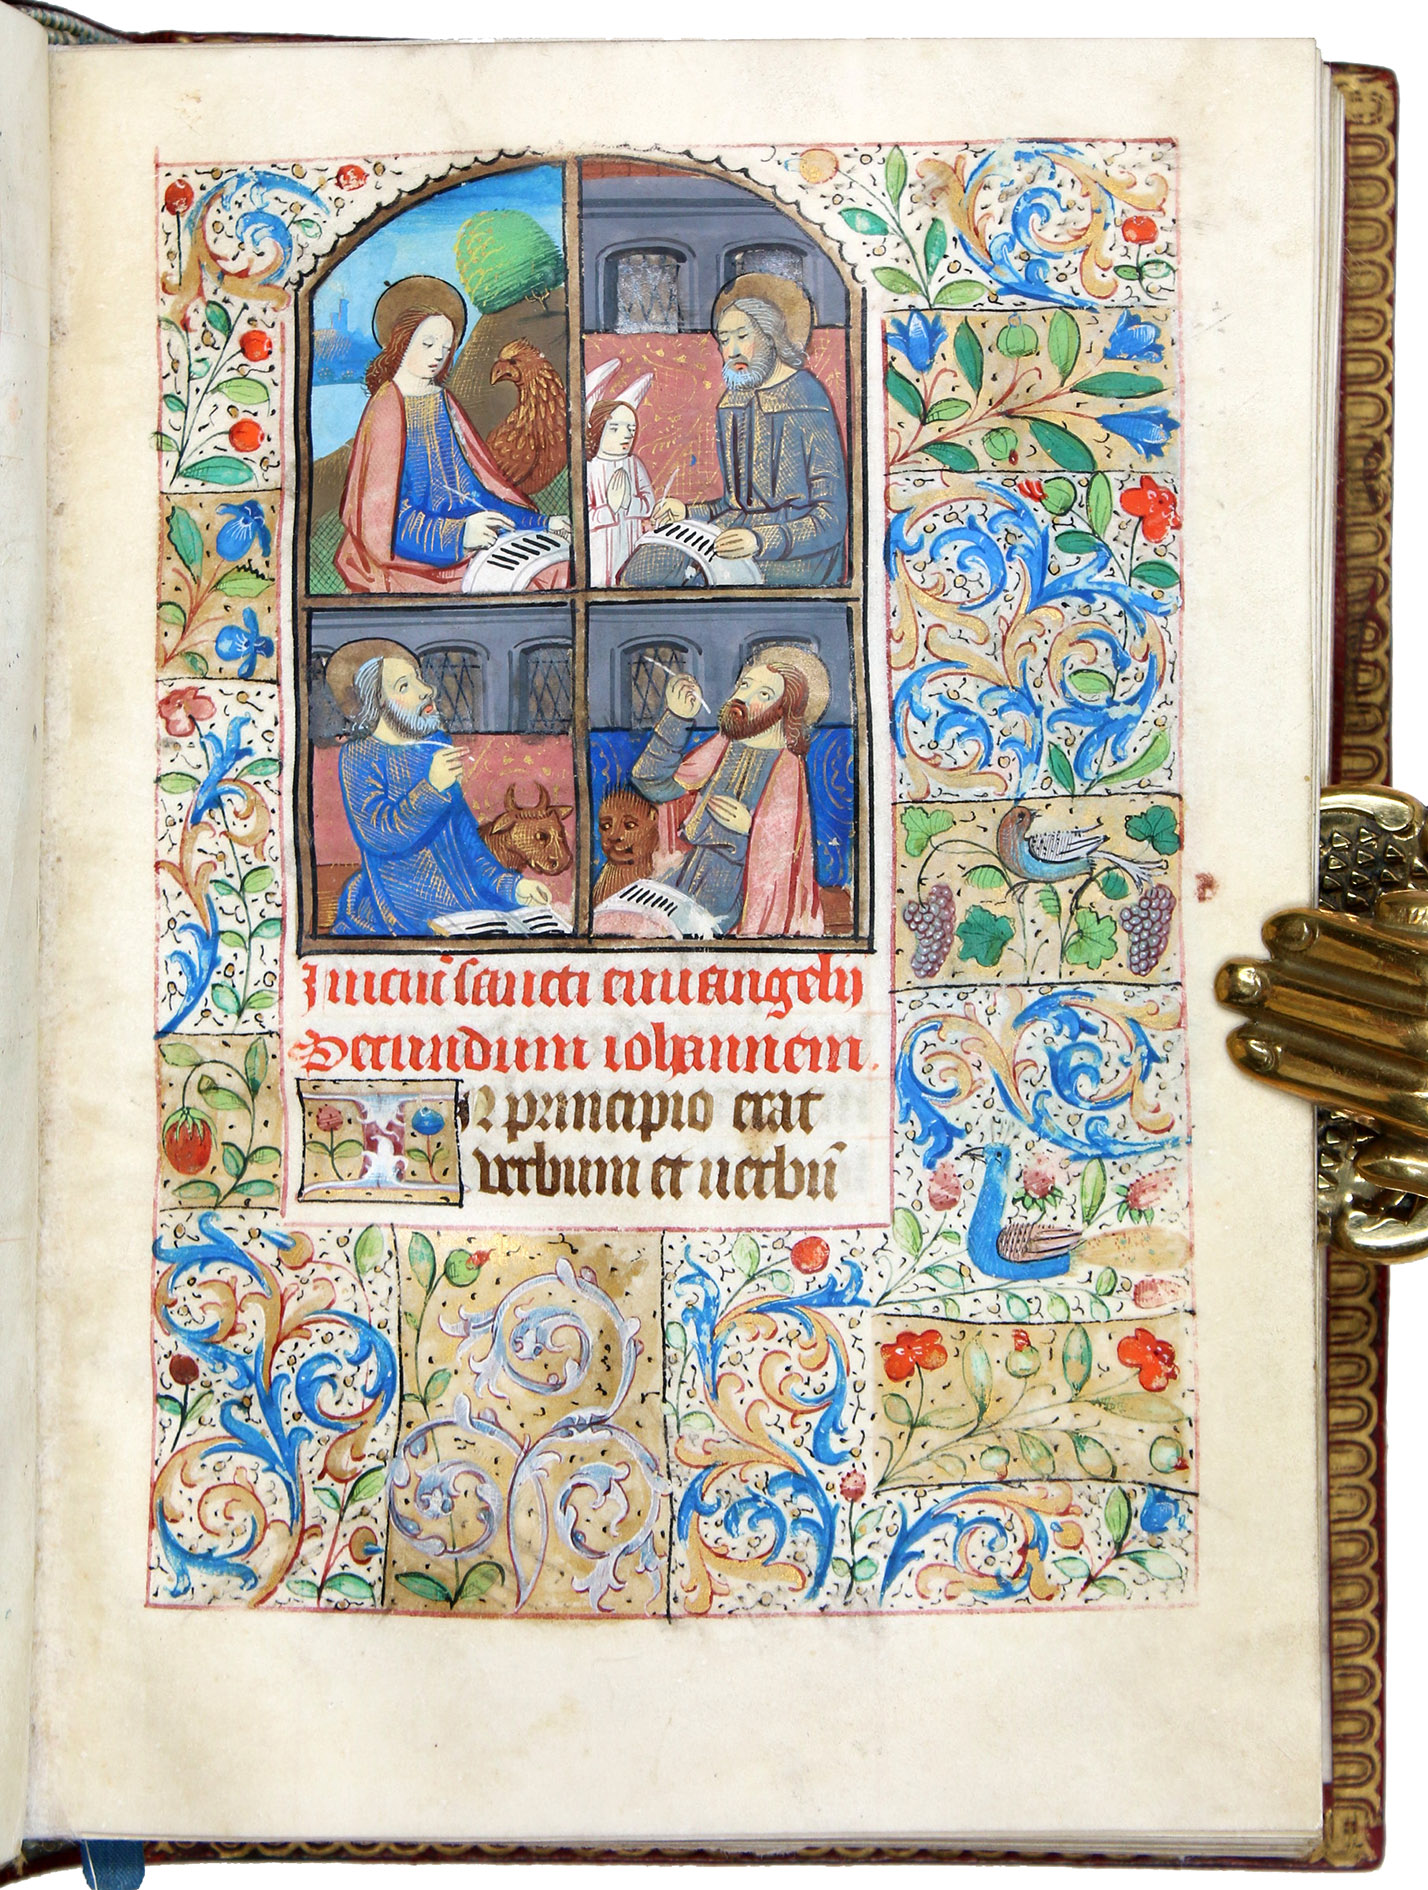 Iniciu᷑ sancti euuangelij
Secundum iohannem.
IN principio erat
uerbum et uerbū